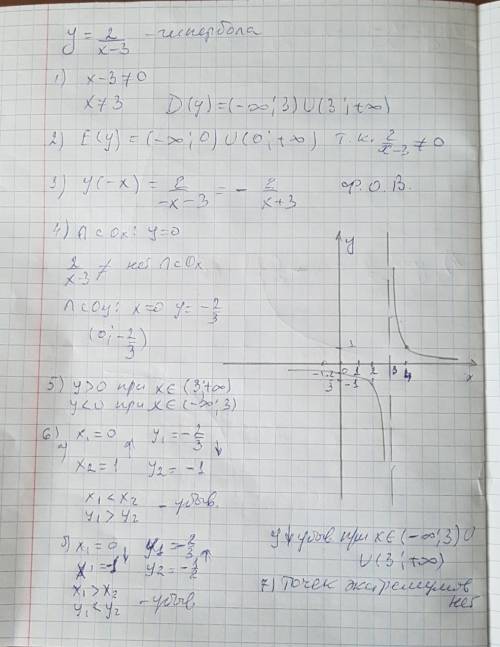 y = 2/(x-3) - гипербола
1) x-3≠0
x≠3 D(y)=(-∞;3)∪(3;+∞)
2) E(y)=(-∞;0)∪(0;+∞) т.к. 2/(x-3)≠0
3) y(-x) = 2/(-x-3) = - 2/(x+3) Ф.О.В.
4) ∩ c Ox: y=0
2/(x-3) ≠ нет ∩ c Ox
∩ c Oy: x=0 y=-2/3
(0;-2/3)
5) y>0 при x∈(3;+∞)
y<0 при x∈(-∞;3)
6) x₁=0 y₁=-2/3 ↓
x₂=1 y₂=-1
x₁<x₂
y₁>y₂ - убыв.
б) x₁=0 ↓ y₁=-2/3 ↑
x₁=-1 y₂=-1/2
x₁>x₂
y₁<y₂ - убыв
y
1
-1 -2/3 0 1 2 3 4 x
-1
y↓ убыв при x∈(-∞;3)∪
∪(3;+∞)
7) точек экстремумов
нет